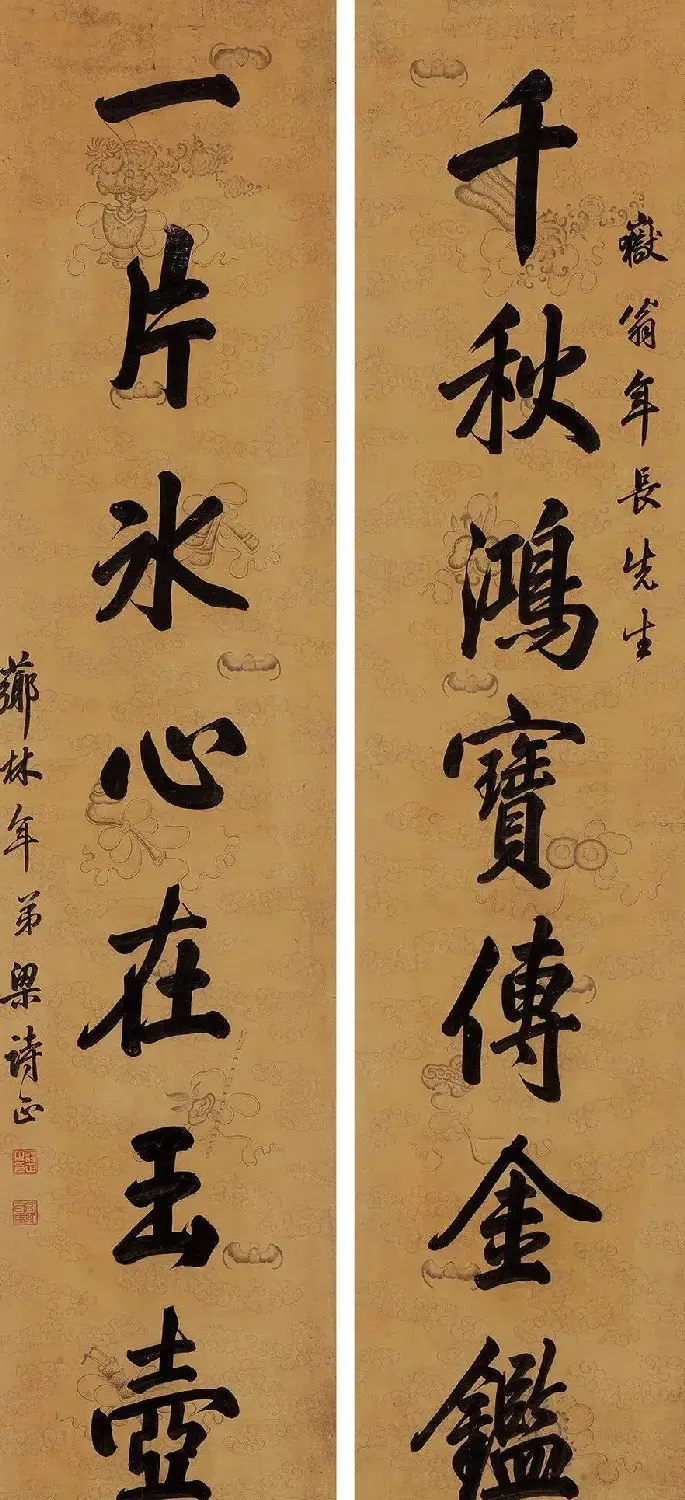 嶽翁年長先生
千秋鴻寶傳金鑑
一片冰心在玉壺
薌林年弟梁詩正